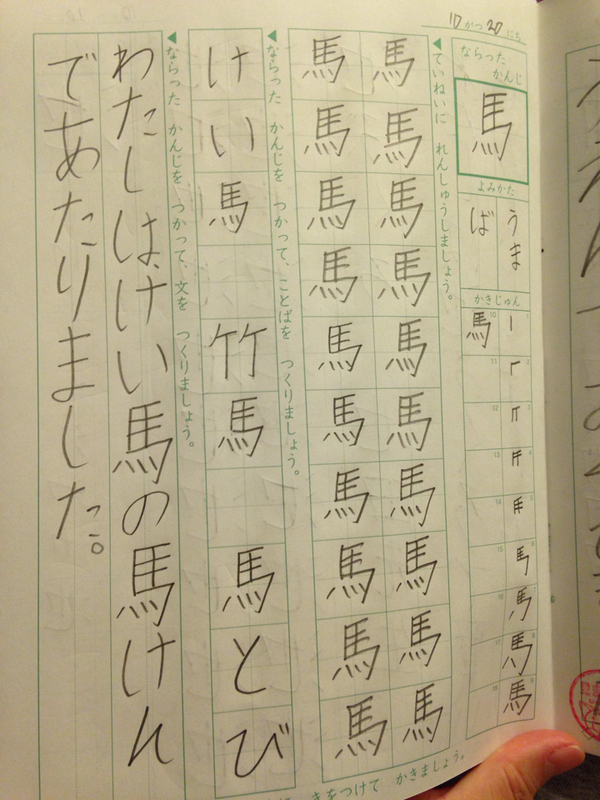 10がつ20にち
ならった
かんじ
馬
よみかた
うま
ば
かきじゅん
馬
◀ていねいに れんしゅうしましょう。
馬馬馬馬馬馬馬馬馬馬
馬馬馬馬馬馬馬馬馬馬
◀ならった かんじを つかって、ことばを つくりましょう。
けい馬 竹馬 馬とび
◀ならった かんじを つかって、文を つくりましょう。
わたしは、けい馬の馬けん
であたりました。
きをつけて かきましょう。